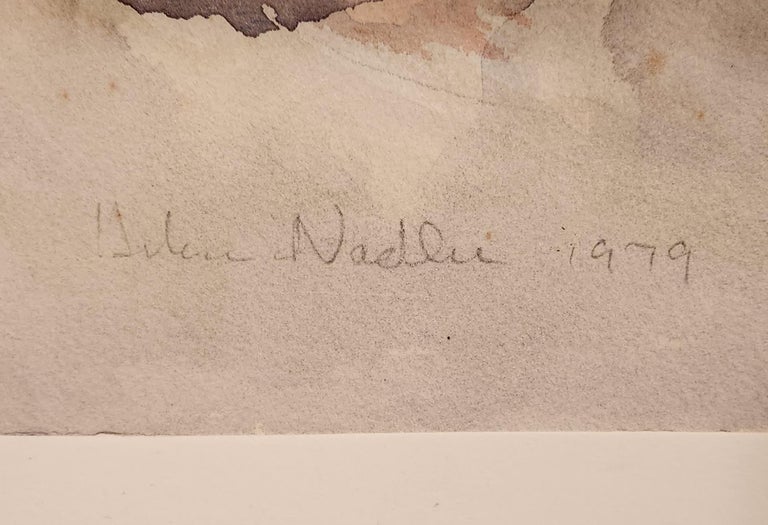 Helen Nadler 1979